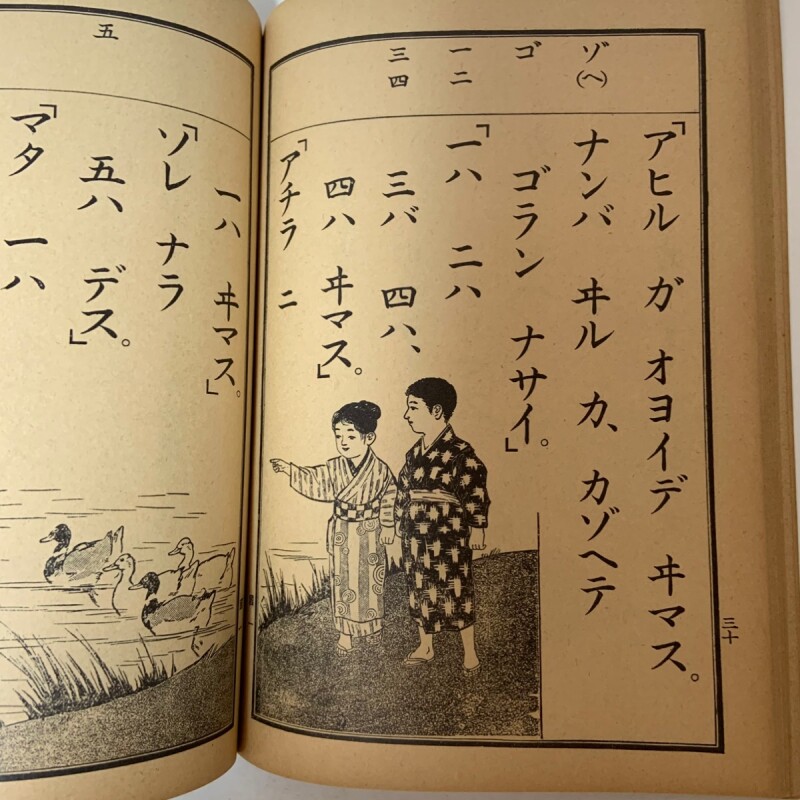 ゾ(ヘ)
ゴ
一二
三四
「アヒル ガ オヨイデ ヰマス。
ナンバ ヰル カ、カゾヘテ
ゴラン ナサイ。」
「一ハ 二ハ
三バ 四ハ、
四ハ ヰマス。」
「アチラ ニ
三十
五
一ハ ヰマス。」
「ソレ ナラ
五ハ デス。」
「マタ 一ハ